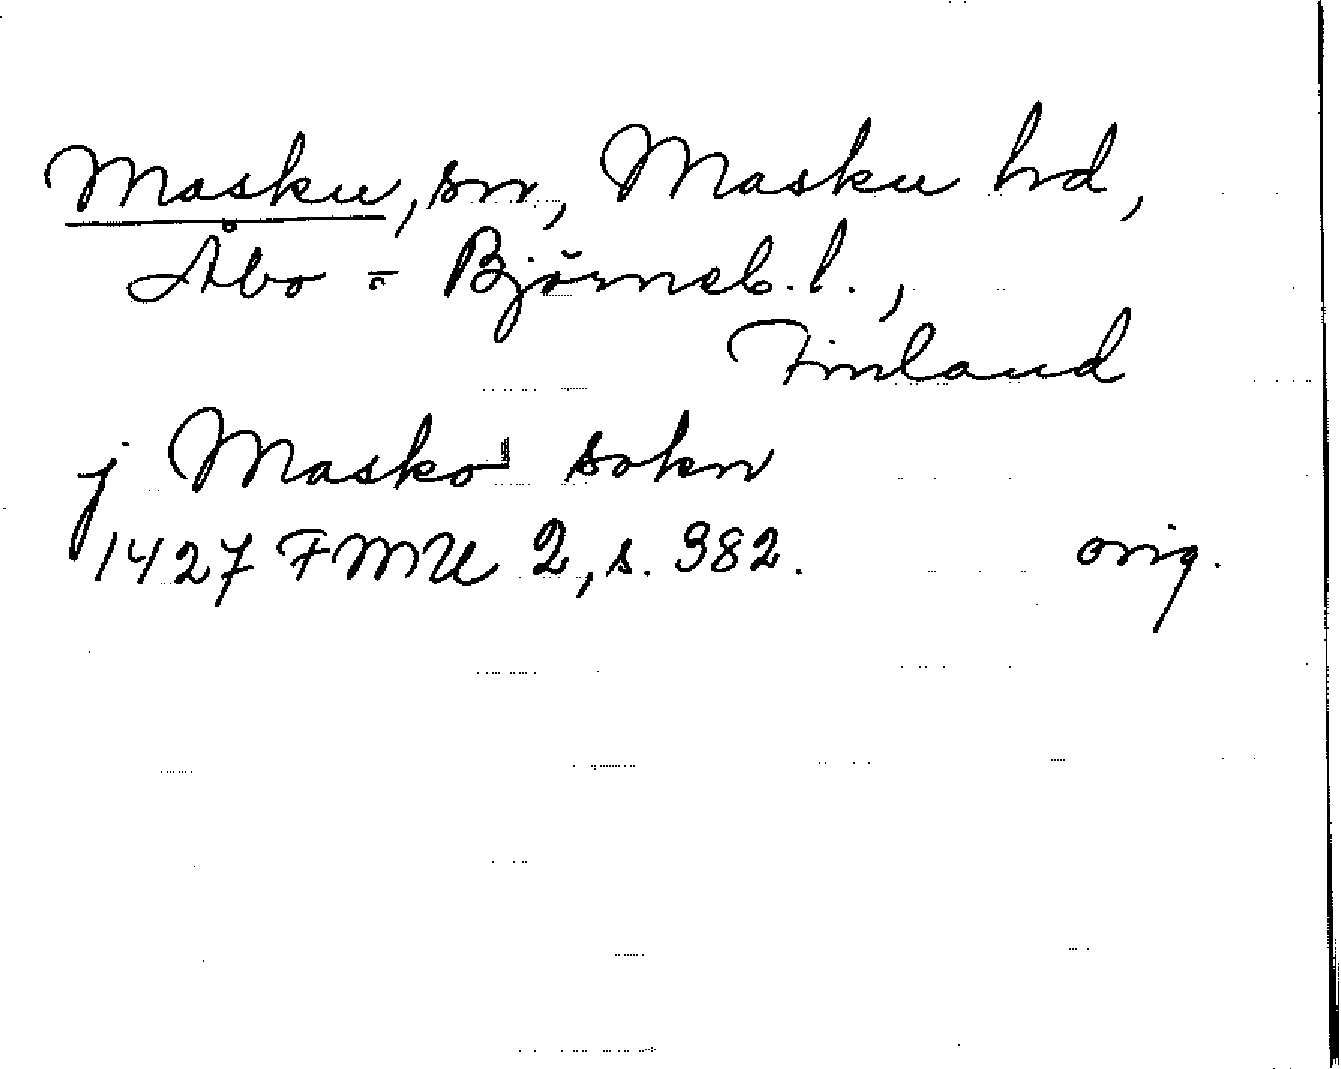 Masku, sn, Masku hd,
Åbo - Björneb. l.,
Finland
j Masko sokn
1427 FMU 2, s. 382. orig.